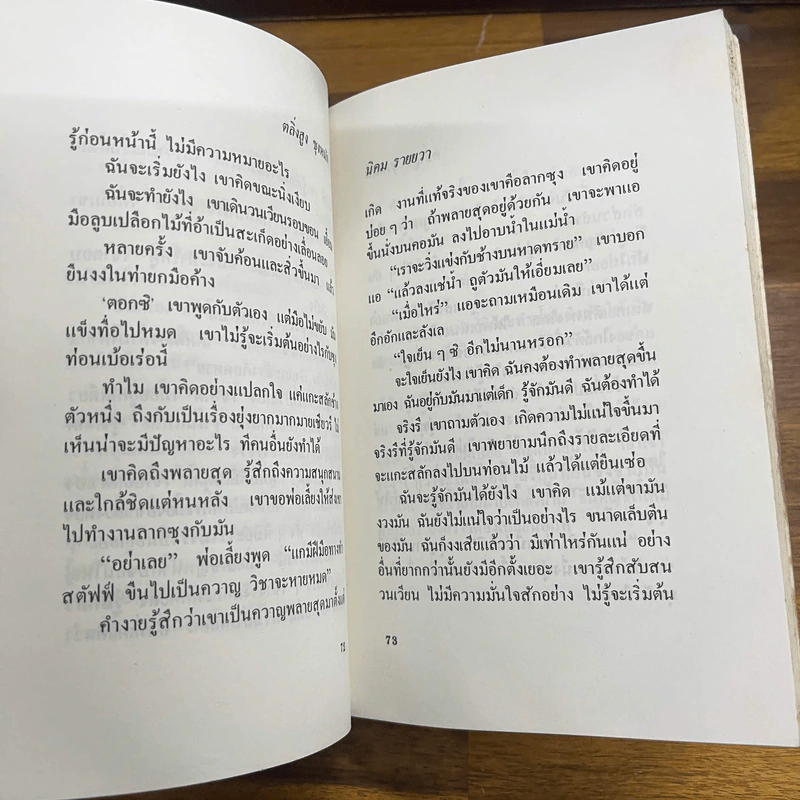 ตลิ่งสูง ซุงหนัก
รู้ก่อนหน้านี้ ไม่มีความหมายอะไร
ฉันจะเริ่มยังไง เขาคิดขณะนิ่งเงียบ
ฉันจะทำยังไง เขาเดินวนเวียนรอบขอน
มือลูบเปลือกไม้ที่อ้าเป็นสะเก็ดอย่างเลื่อนลอย
หลายครั้ง เขาจับค้อนและสิ่วขึ้นมา แล้ว
ยืนงงในท่ายกมือค้าง
‘ตอกซิ’ เขาพูดกับตัวเอง แต่มือไม่ขยับ มัน
แข็งทื่อไปหมด เขาไม่รู้จะเริ่มต้นอย่างไรกับซุง
ท่อนเบ้อเร่อนี้
ทำไม เขาคิดอย่างแปลกใจ แค่แกะสลักช้าง
ตัวหนึ่ง ถึงกับเป็นเรื่องยุ่งยากมากมายเชียวรึ ไม่
เห็นน่าจะมีปัญหาอะไร ทีคนอื่นยังทำได้
เขาคิดถึงพลายสุด รู้สึกถึงความสนุกสนาน
และใกล้ชิดแต่หนหลัง เขาขอพ่อเลี้ยงให้ส่งเขา
ไปทำงานลากซุงกับมัน
“อย่าเลย” พ่อเลี้ยงพูด “แกมีฝีมือทางทำ
สตัฟฟ์ ขืนไปเป็นควาญ วิชาจะหายหมด”
คำงายรู้สึกว่าเขาเป็นควาญพลายสุดมาตั้งแต่
72
นิคม รายยวา
เกิด งานที่แท้จริงของเขาคือลากซุง เขาคิดอยู่
บ่อย ๆ ว่า ถ้าพลายสุดอยู่ด้วยกัน เขาจะพาแอ
ขึ้นนั่งบนคอมัน ลงไปอาบน้ำในแม่น้ำ
“เราจะวิ่งแข่งกับช้างบนหาดทราย” เขาบอก
แอ “แล้วลงแช่น้ำ ถูตัวมันให้เอี่ยมเลย”
“เมื่อไหร่” แอจะถามเหมือนเดิม เขาได้แต่
อึกอักและลังเล
“ใจเย็น ๆ ซิ อีกไม่นานหรอก”
จะใจเย็นยังไง เขาคิด ฉันคงต้องทำพลายสุดขึ้น
มาเอง ฉันอยู่กับมันมาแต่เด็ก รู้จักมันดี ฉันต้องทำได้
จริงรึ เขาถามตัวเอง เกิดความไม่แน่ใจขึ้นมา
จริงรึที่รู้จักมันดี เขาพยายามนึกถึงรายละเอียดที่
จะแกะสลักลงไปบนท่อนไม้ แล้วได้แต่ยืนเซ่อ
ฉันจะรู้จักมันได้ยังไง เขาคิด แม้แต่ขามัน
งวงมัน ฉันยังไม่แน่ใจว่าเป็นอย่างไร ขนาดเล็บตีน
ของมัน ฉันก็งงเสียแล้วว่า มีเท่าไหร่กันแน่ อย่าง
อื่นที่ยากกว่านั้นยังมีอีกตั้งเยอะ เขารู้สึกสับสน
วนเวียน ไม่มีความมั่นใจสักอย่าง ไม่รู้จะเริ่มต้น
73